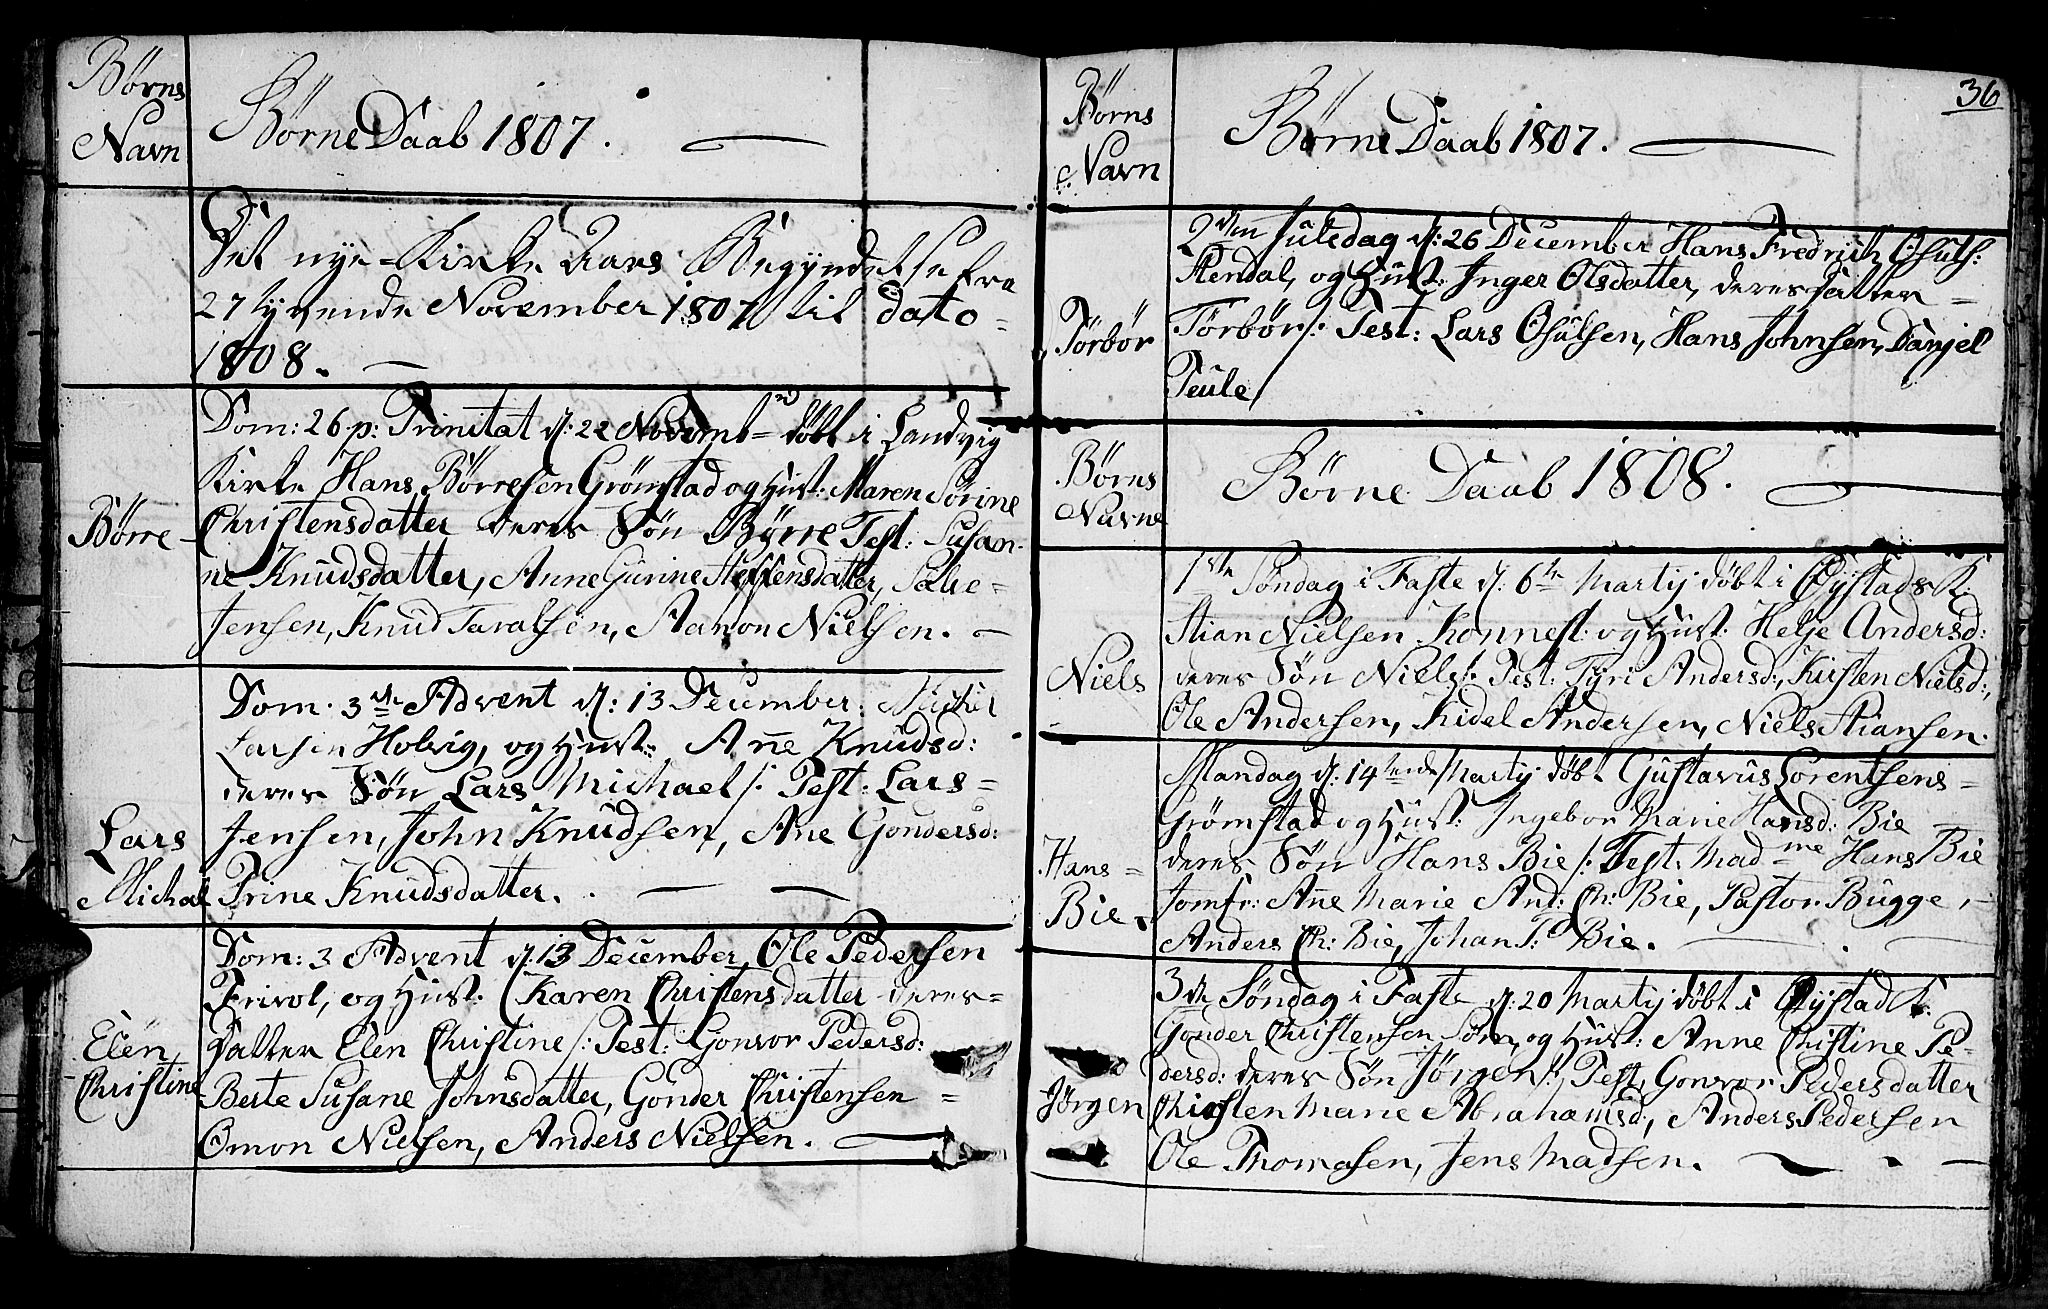 Børns
Navn
Børne Daab 1807.
Det nye Kirke Aars Begyndelse fra
27 tyvende November 1807 til dato
1808.
Dom: 26 p: Trinitat d: 22 Novemb= døbt i Landvig
Kirke Hans Børresen Grømstad og Hust: Maren Sørine
Børre
Christensdatter deres Søn Børre Test: Susan-
ne Knudsdatter, Anne Gurine Steffensdatter,
Jensen, Knud Taralsen, Aamon Nielsen.
Dom. 3de Advent d: 13 December: Michel
Larsen Holvig, og Hust: Ane Knudsd:
deres Søn Lars Michael /: Test: Lars=
Lars
Michael
Jensen, John Knudsen, Ane Gondersd:
Trine Knudsdatter.
Dom: 3 Advent d: 13 December, Ole Pedersen
Frivol, og Hust: Karen Christensdatter deres=
Elen
Christine
Datter Elen Christine /: Test: Gonvor Pedersd:
Berte Susane Johnsdatter, Gonder Christensen =
Omon Nielsen, Anders Nielsen.
36
Børns
Navn
Børne Daab 1807.
2den Juledag d: 26 December Hans Fredrich Osuls:
Stendal, og Hust: Inger Olsdatter, deres Datter =
Tørbør
Tørbør /: Test: Lars Osulsen, Hans Johnsen, Danjel
Teule /
Børns
Navne
Børne Daab 1808.
1ste Søndag i Faste d: 6te Martij døbt i Øystads K:
Stian Nielsen Konnest: og Hust: Helje Andersd:
Niels
deres Søn Niels /: Test: Tyri Andersd:, Kirsten Nielsd:,
Ole Andersen, Kidel Andersen, Niels Stiansen.
Mandag d: 14tende Martij døbt Gustavus Lorentsens=
Grømstad og Hust: Ingebor Marie Hansd: Bie
Hans=
Bie.
deres Søn Hans Bie /: Test: Madme Hans Bie
Jomfr: Ane Marie And: Ch: Bie, Pastor Bugge,
Anders Ch: Bie, Johan T: Bie.
3de Søndag i Faste d: 20 Martij døbt i Øystad K:
Gonder Christensen Søm, og Hust: Anne Christine Pe-
Jørgen
dersd: deres Søn Jørgen /: Test, Gonvor Pedersdatter
Chirsten Marie Abrahamsd:, Anders Pedersen
Ole Thomasen, Jens Madsen.